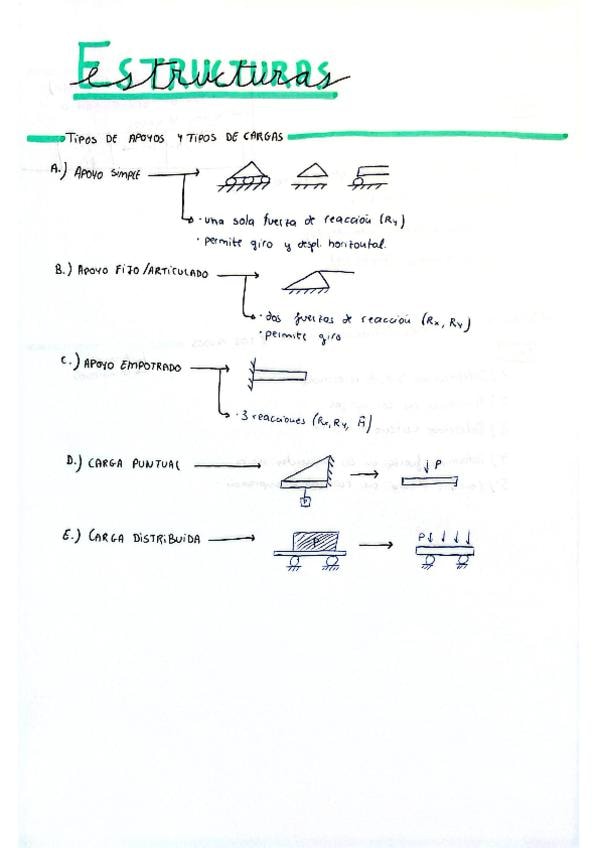 ESTRUCTURAS
estructuras
TIPOS DE APOYOS Y TIPOS DE CARGAS
A.) APOYO SIMPLE
· una sola fuerza de reacción (Ry)
· permite giro y despl. horizontal.
B.) APOYO FIJO/ARTICULADO
· dos fuerzas de reacción (Rx, Ry)
· permite giro
C.) APOYO EMPOTRADO
· 3 reacciones (Rx, Ry, M)
D.) CARGA PUNTUAL
P
P
E.) CARGA DISTRIBUIDA
P
P